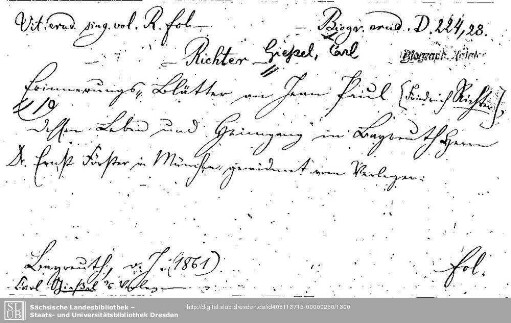 Vit. erud. sing. vol. R. fol. Biogr. erud. D. 224, 28.
Richter Gießel, Carl
Erinnerungs-Blätter an Jean Paul (Friedrich Richter),
dessen Leben und Heimgang in Bayreuth. Herrn
Dr. Ernst Förster in München gewidmet vom Verleger.
Bayreuth, o. J. (1861) fol.
Carl Gießel
Sächsische Landesbibliothek –
Staats- und Universitätsbibliothek Dresden